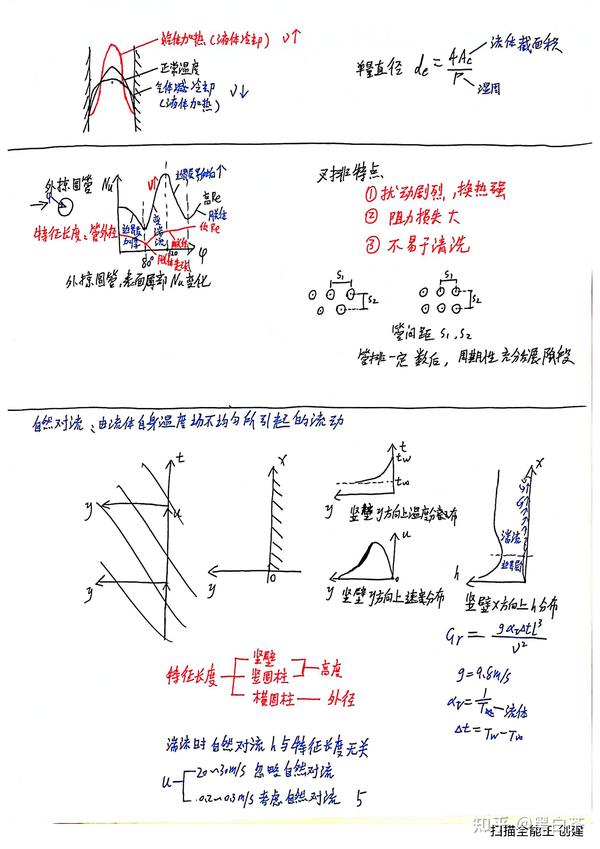 液体加热(液体冷却) ν↑
正常温度
气体冷却 ν↓
(液体加热)
当量直径 de = 4Ac/P
流体截面积
湿周
外掠圆管
特征长度:管外径
Nu
边界层
加厚
ν↑
变湍流
高Re
脱体
低Re
脱体
80°
120
φ
外掠圆管,表面局部Nu变化
叉排特点
① 扰动剧烈,换热强
② 阻力损失大
③ 不易于清洗
S1
S2
S1
S2
管间距 S1、S2
管排一定数后,周期性充分发展阶段
自然对流:由流体自身温度场不均匀所引起的流动
t
y
u
y
x
y
0
t
tw
t∞
y
竖壁y方向上温度分布
u
y
0
竖壁y方向上速度分布
x
Gr
湍流
h
竖壁x方向上h分布
Gr = gαvΔtl³/ν²
g=9.8m/s
αv = 1/T∞ —流体
Δt = Tw-T∞
特征长度
竖壁
竖圆柱
高度
横圆柱 — 外径
湍流时自然对流h与特征长度无关
u
20~30m/s 忽略自然对流
0.2~0.3m/s 考虑自然对流
5
知乎 @黑白荼
扫描全能王 创建